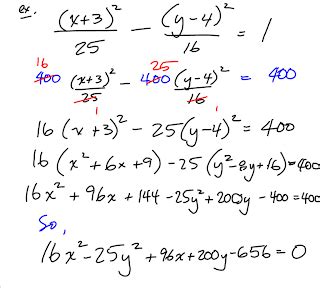 ex. (x+3)²/25 - (y-4)²/16 = 1
16 25
400 (x+3)²/25 - 400 (y-4)²/16 = 400
1 1
16(x+3)² - 25(y-4)² = 400
16(x²+6x+9) - 25(y²-8y+16) = 400
16x² + 96x + 144 - 25y² + 200y - 400 = 400
So,
16x² - 25y² + 96x + 200y - 656 = 0